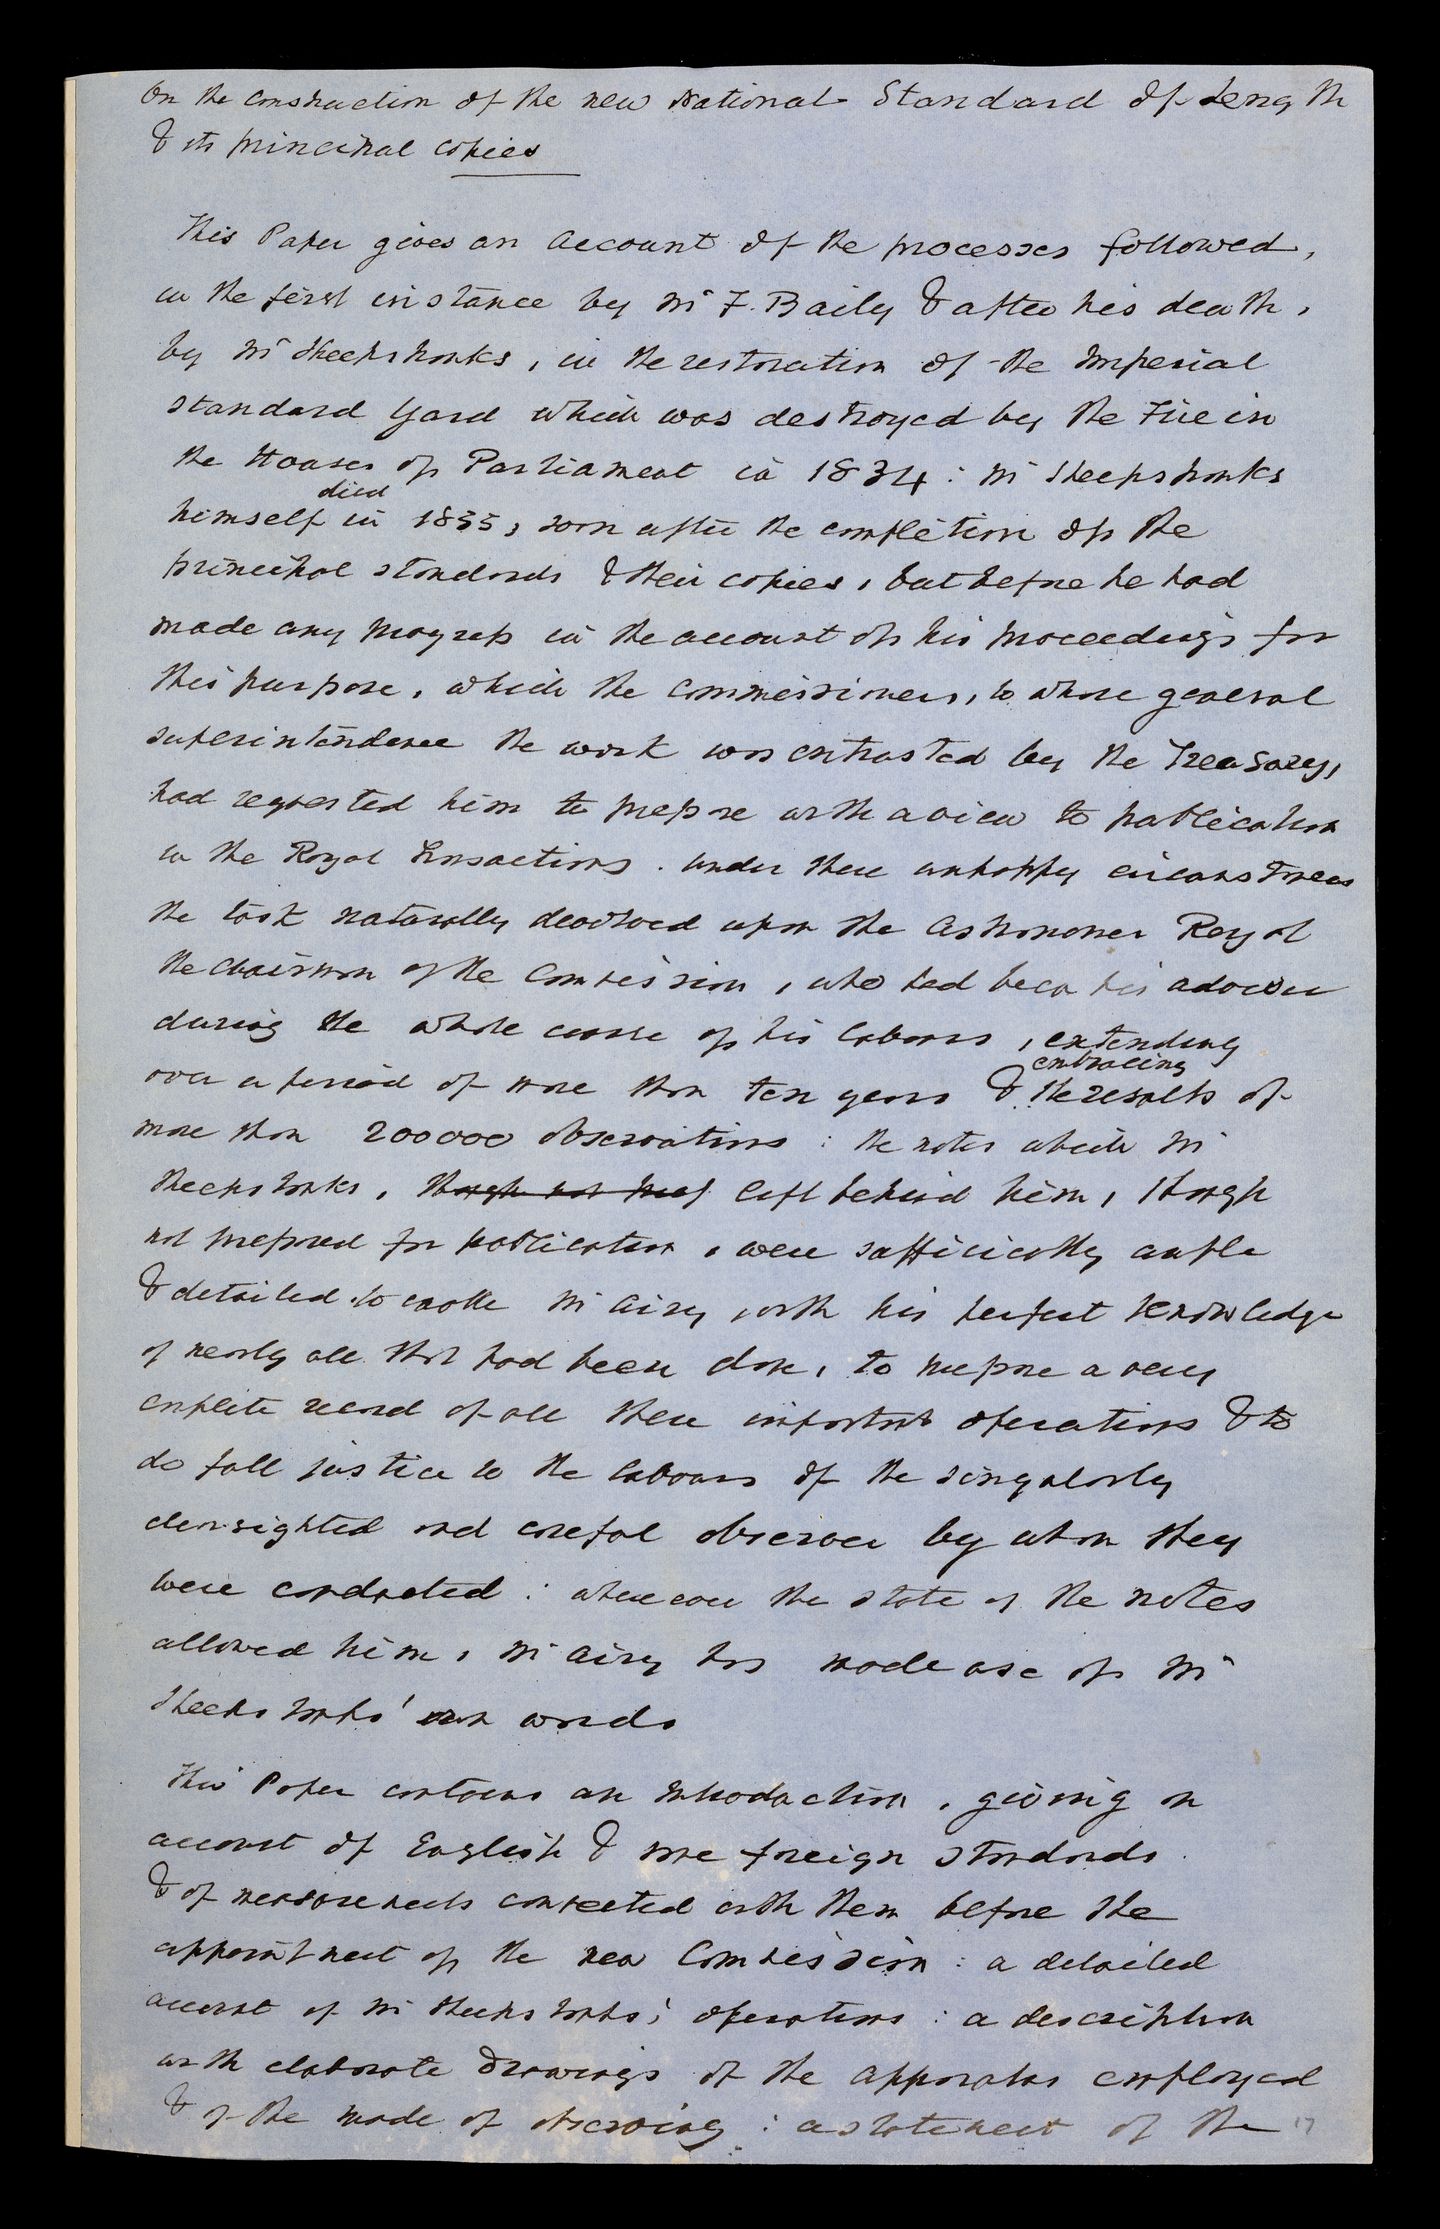 On the construction of the new National Standard of Length
& its principal copies
This Paper gives an account of the processes followed,
in the first instance by Mr F. Baily & after his death,
by Mr Sheepshanks, in the restoration of the Imperial
standard Yard which was destroyed by the Fire in
the Houses of Parliament in 1834: Mr Sheepshanks
himself died in 1855, soon after the completion of the
principal standards & their copies, but before he had
made any progress in the account of his proceedings for
this purpose, which the Commissioners, to whose general
superintendence the work was entrusted by the Treasury,
had requested him to prepare with a view to publication
in the Royal Transactions. Under these unhappy circumstances
the task naturally devolved upon the Astronomer Royal
the chairman of the Commission, who had been his adviser
during the whole course of his labours, extending
over a period of more than ten years & embracing the results of
more than 200000 observations: the notes which Mr
Sheepshanks, though not left behind him, though
not prepared for publication, were sufficiently ample
& detailed to enable Mr Airy, with his perfect knowledge
of nearly all that had been done, to prepare a very
complete record of all these important operations & to
do full justice to the labours of the singularly
clearsighted and careful observer by whom they
were conducted: wherever the state of the notes
allowed him, Mr Airy has made use of Mr
Sheepshanks' own words
This Paper contains an Introduction, giving an
account of English & some foreign standards
& of measurements connected with them before the
appointment of the new Commission: a detailed
account of Mr Sheepshanks' operations: a description
with elaborate drawings of the apparatus employed
& of the mode of observing: a statement of the
17